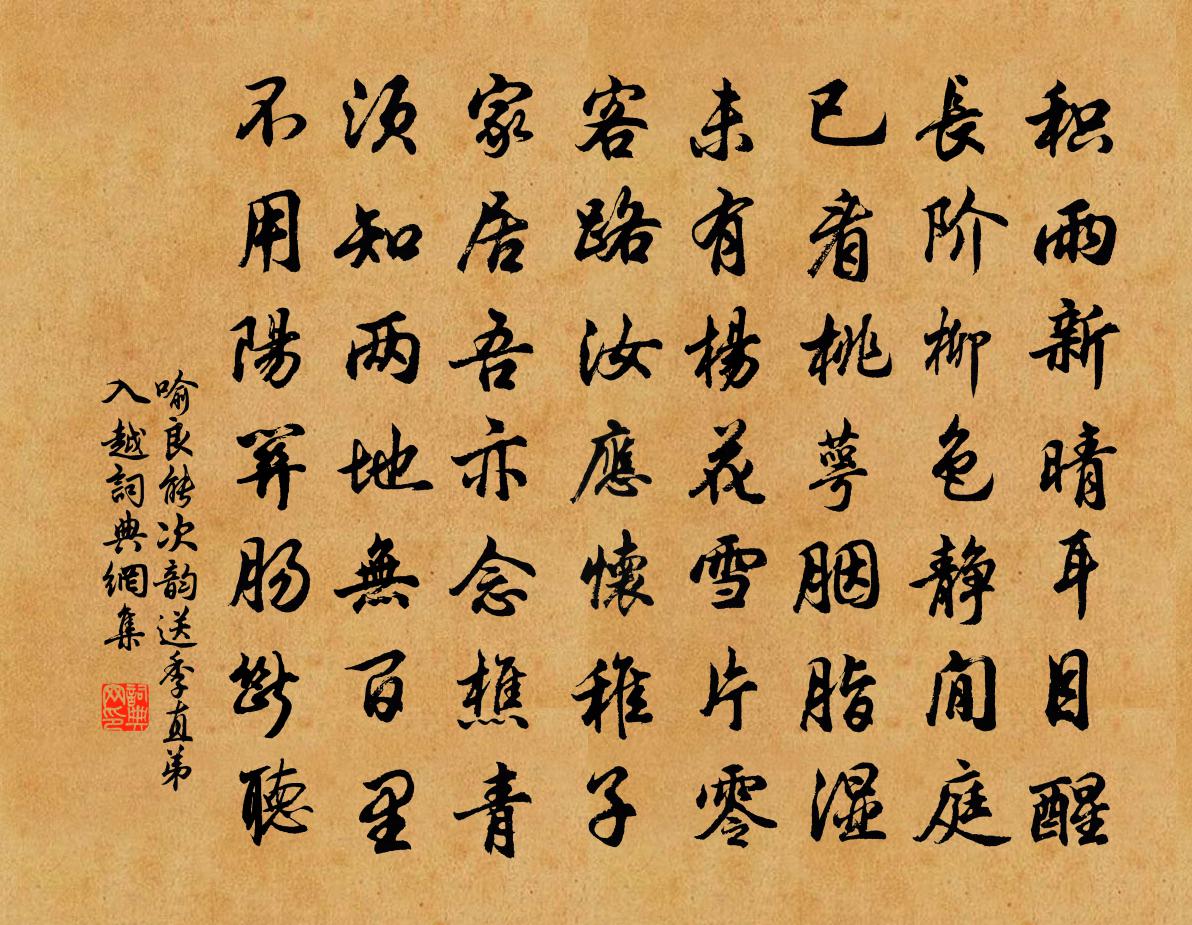 积雨新晴耳目醒
長阶柳色静间庭
已看桃萼胭脂湿
未有楊花雪片零
客路汝應懷稚子
家居吾亦念樵青
须知两地無百里
不用陽关肠断聽
喻良能次韵送季直弟
入越詞典網集
詞典
网印